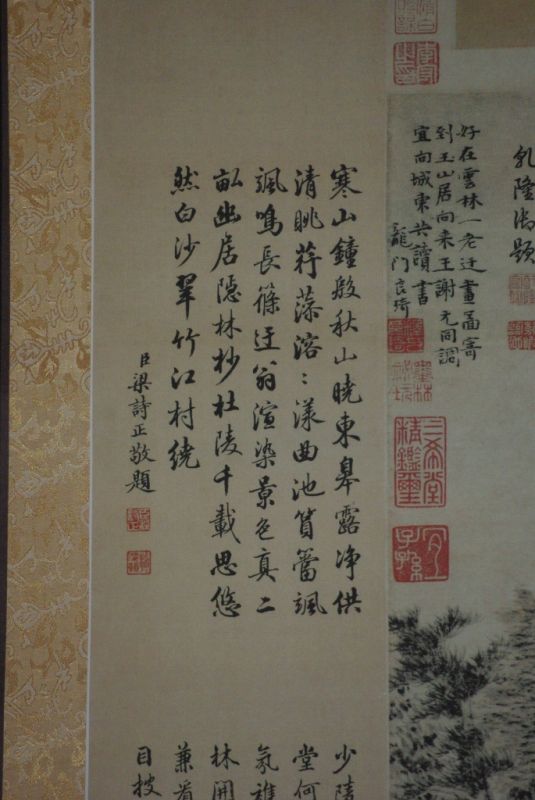 乾隆御題
好在雲林一老迂畫圖寄
到玉山居向来王謝尤同調
宜向城東共讀書
龍門良琦
墨林
秘玩
三希堂
精鑑璽
宜
子孫
寒山鐘殷秋山曉東皋露净供
清眺荇藻溶〻漾曲池篔簹颯
颯鳴長篠迂翁渲染景色真二
畝幽居隱林杪杜陵千載思悠
然白沙翠竹江村繞
臣梁詩正敬題
少陵
堂何
氣誰
林開
兼看
目披